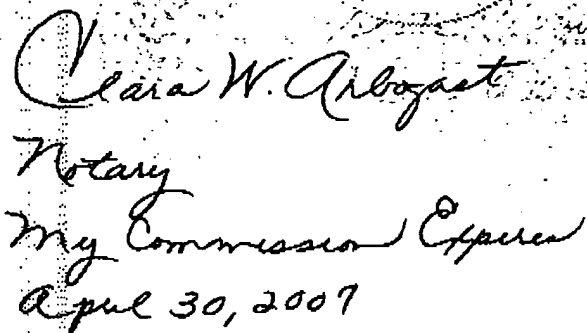 Clara W. Arbogast
Notary
My Commission Expires
April 30, 2007